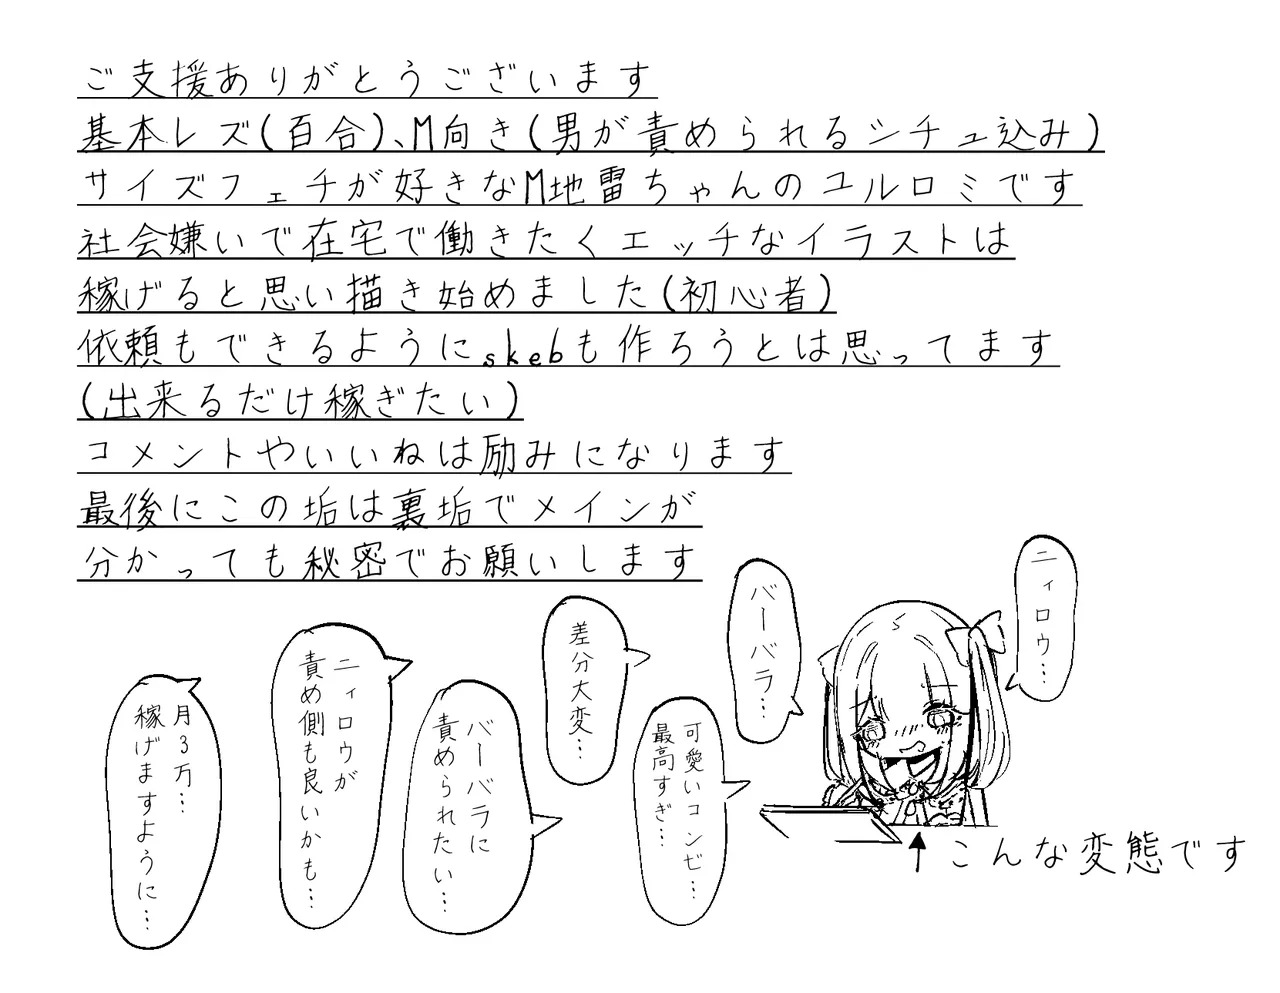 ご支援ありがとうございます
基本レズ(百合)、M向き(男が責められるシチュ込み)
サイズフェチが好きなM地雷ちゃんのユルロミです
社会嫌いで在宅で働きたくエッチなイラストは
稼げると思い描き始めました(初心者)
依頼もできるようにskebも作ろうとは思ってます
(出来るだけ稼ぎたい)
コメントやいいねは励みになります
最後にこの垢は裏垢でメインが
分かっても秘密でお願いします
ニィロウ…
バーバラ…
差分大変…
可愛いコンビ…
最高すぎ…
バーバラに
責められたい…
ニィロウが
責め側も良いかも…
月3万…
稼げますように…
↑こんな変態です